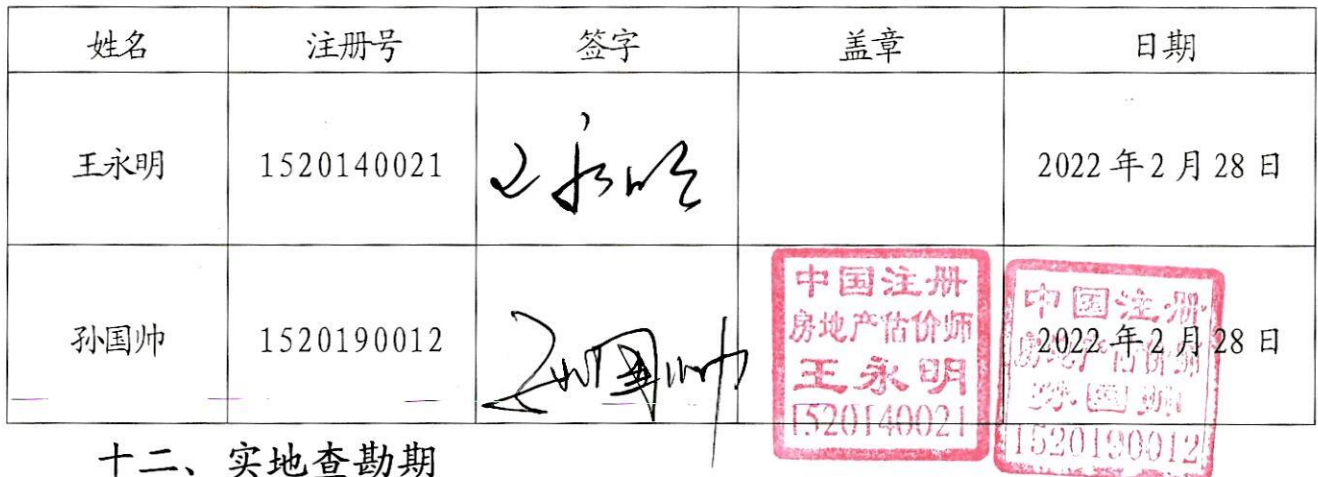 姓名 注册号 签字 盖章 日期
王永明 1520140021 王永明 2022年2月28日
孙国帅 1520190012 孙国帅 2022年2月28日
中国注册
房地产估价师
王永明
1520140021
中国注册
房地产估价师
孙国帅
1520190012
十二、实地查勘期